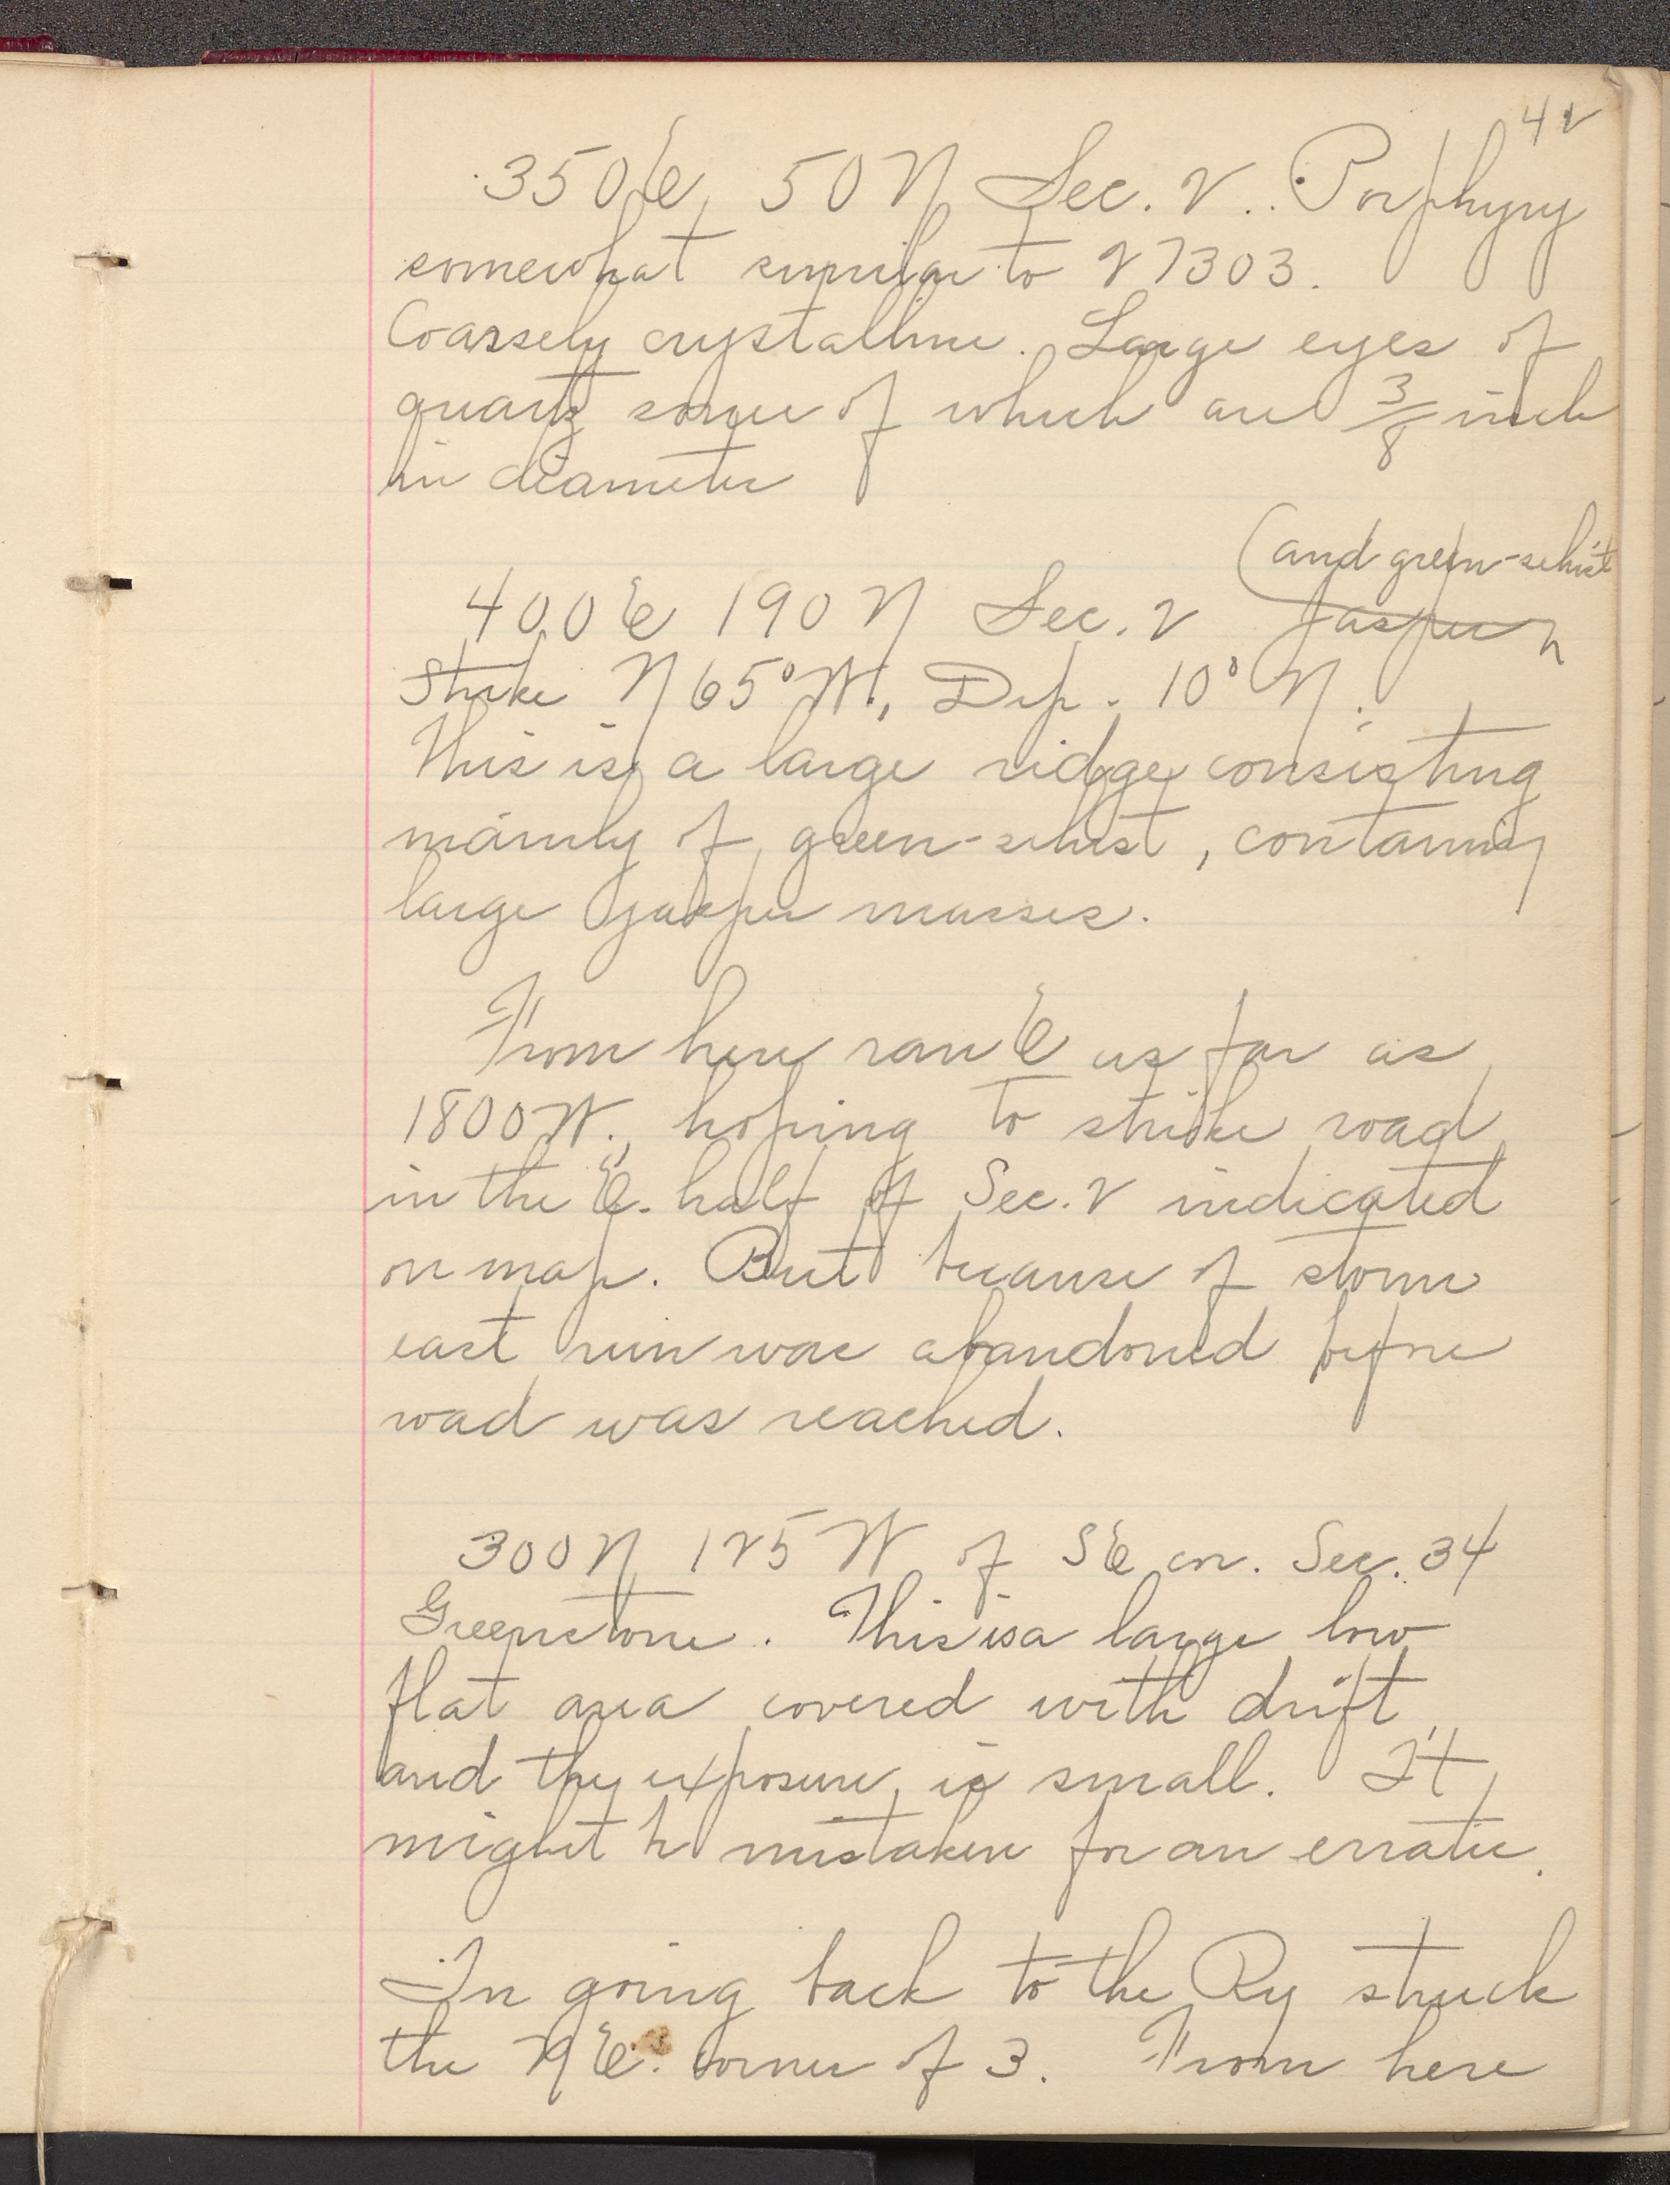 42
350 E, 50 N Sec. 2. Porphyry
somewhat similar to 27303.
Coarsely crystalline. Large eyes of
quartz some of which are 3/8 inch
in diameter
(and green-schist
400 E 190 N Sec. 2 Jasper
Strike N 65° W., Dip. 10° N.
This is a large ridge consisting
mainly of green-schist, containing
large jasper masses.
From here ran E as far as
1800 W., hoping to strike road
in the E. half of Sec. 2 indicated
on map. But because of storm
east run was abandoned before
road was reached.
300 N 125 W of SE cor. Sec. 34
Greenstone. This is a large low
flat area covered with drift,
and the exposure is small. It
might be mistaken for an erratic.
In going back to the Ry struck
the N E. corner of 3. From here